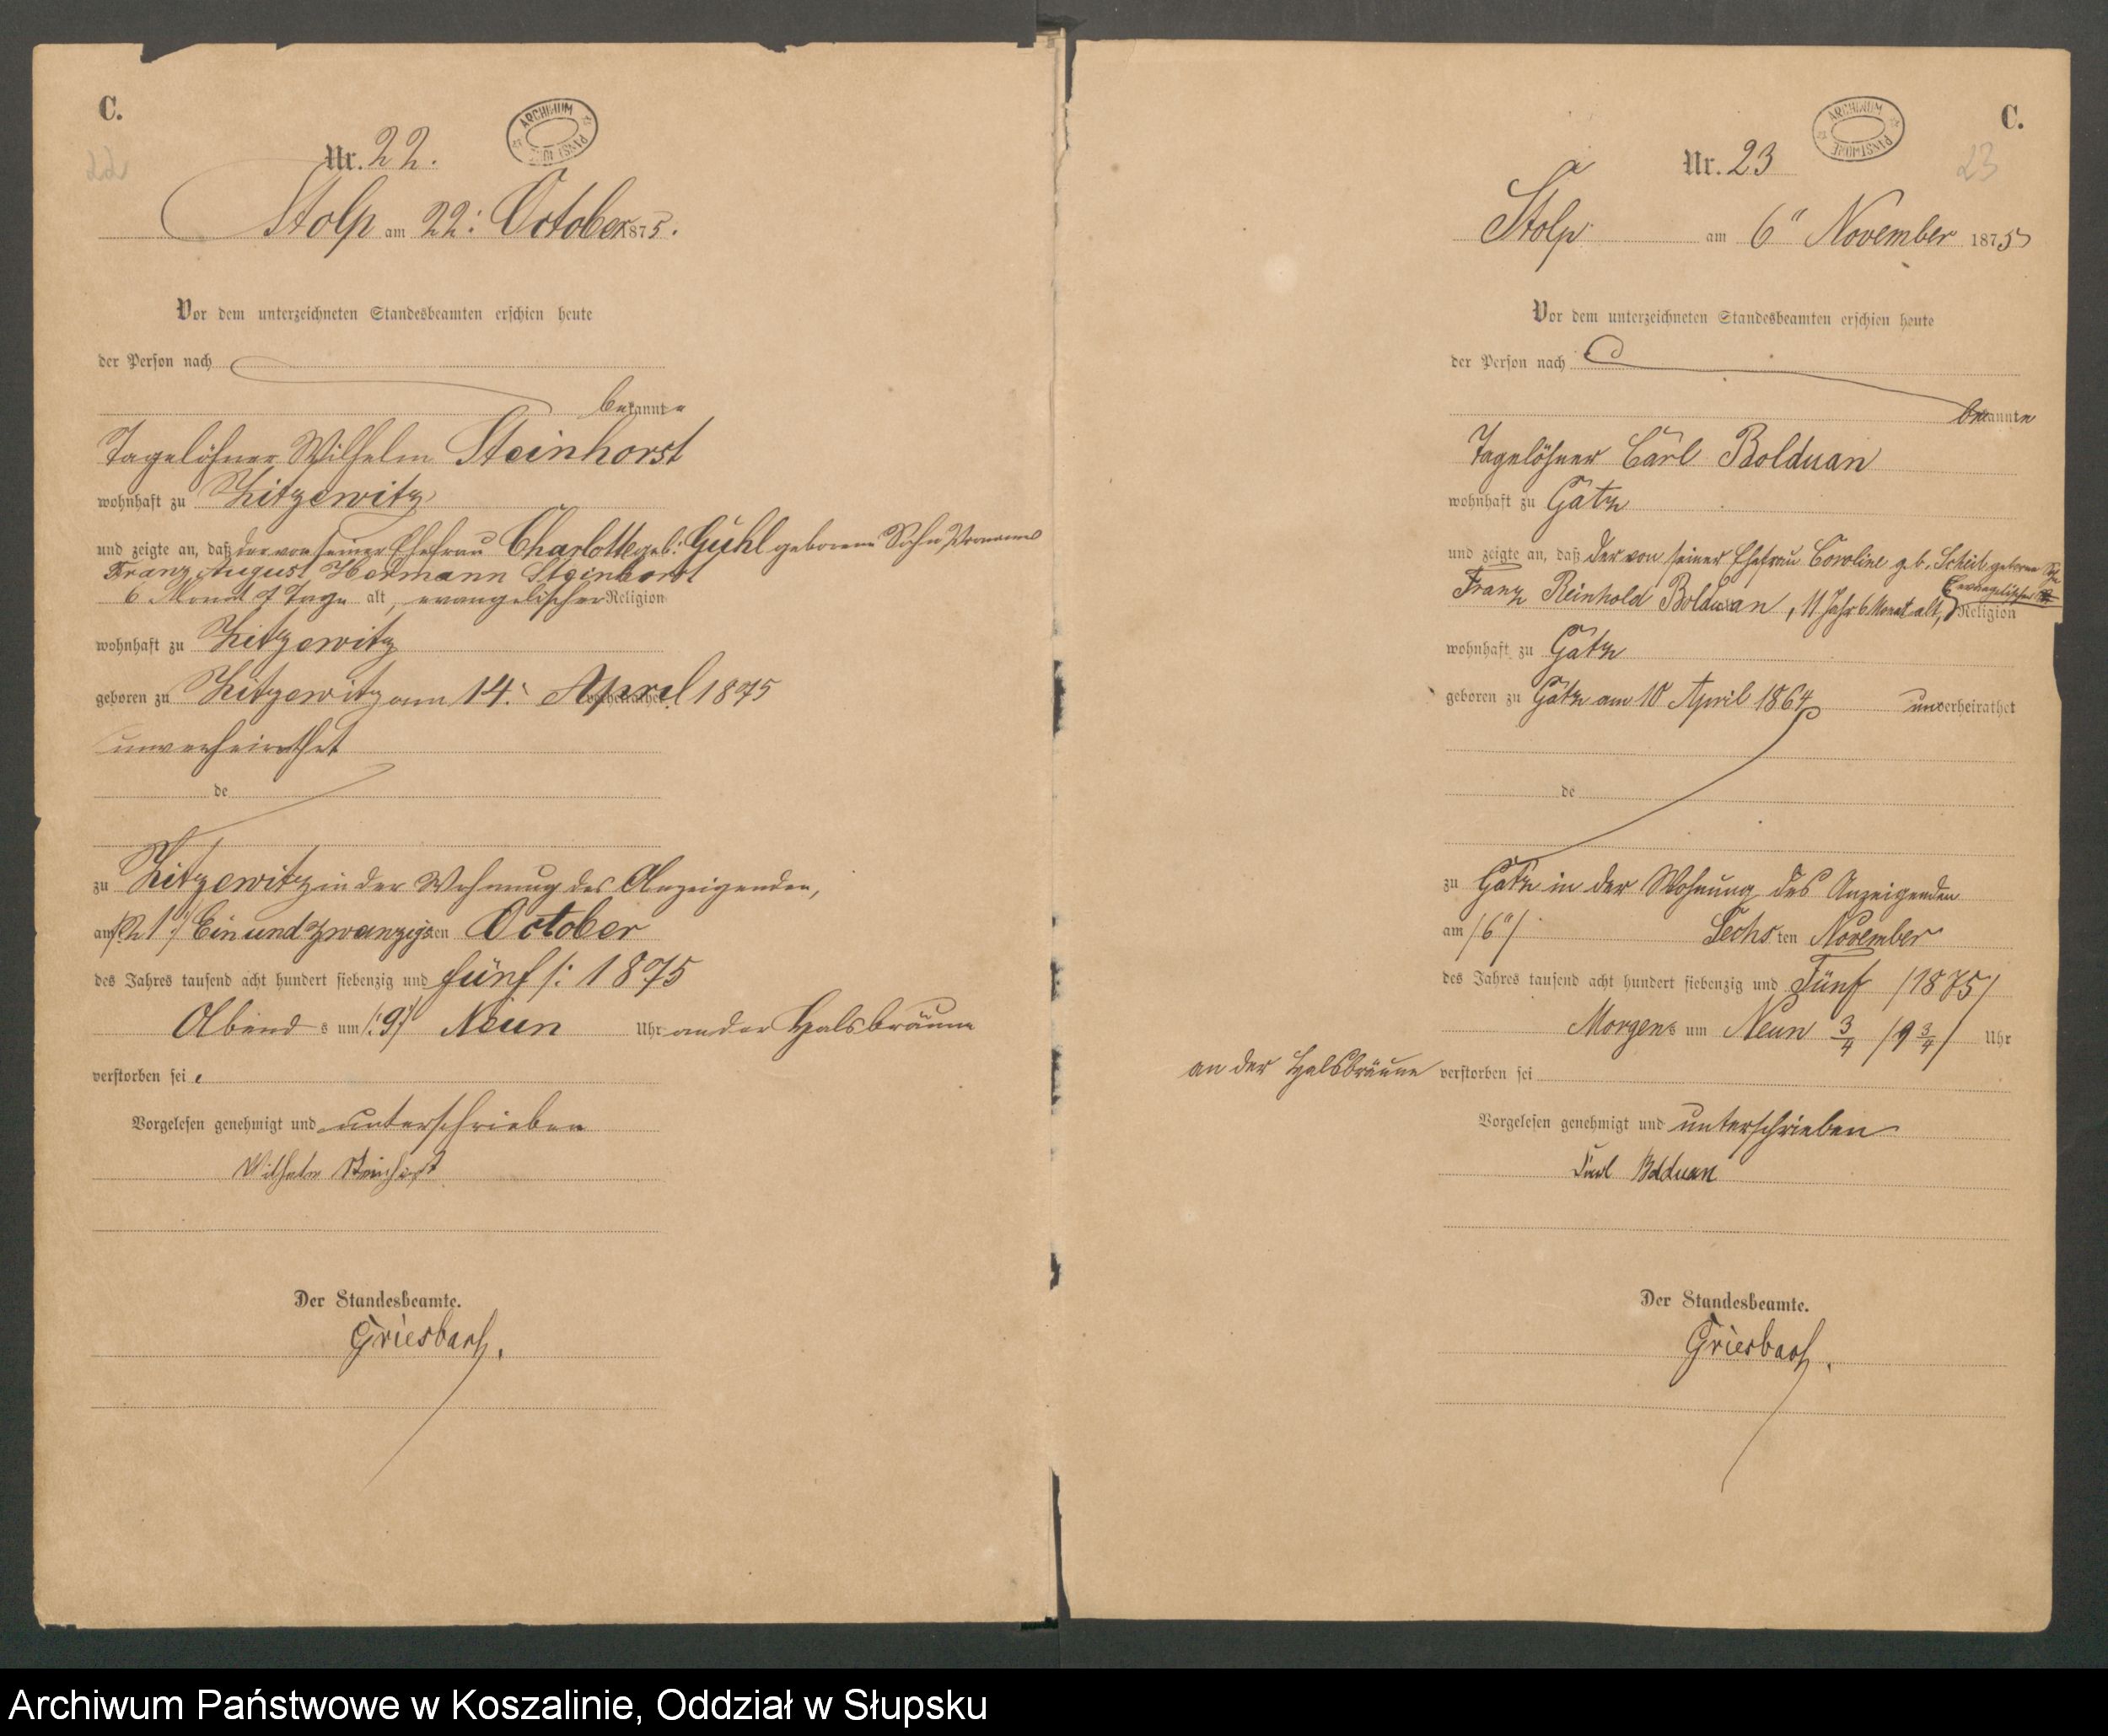 C.
Nr. 22.
ARCHIWUM PAŃSTWOWE
Stolp am 22: October 1875.
Vor dem unterzeichneten Standesbeamten erschien heute
der Person nach
bekannte
Tagelöhner Wilhelm Steinhorst
wohnhaft zu Zitzewitz
und zeigte an, daß der von seiner Ehefrau Charlotte geb: Guhl geborene Sohn Vornamens
Franz August Hermann Steinhorst
6 Monat 7 Tage alt, evangelischer Religion
wohnhaft zu Zitzewitz
geboren zu Zitzewitz am 14: April 1875
unverheirathet
de
zu Zitzewitz in der Wohnung des Anzeigenden,
am /:21:/ Ein und zwanzigsten October
des Jahres tausend acht hundert siebenzig und fünf /: 1875
Abends um /:9:/ Neun Uhr an der Halsbräune
verstorben sei.
Vorgelesen genehmigt und unterschrieben
Wilhelm Steinhorst
Der Standesbeamte.
Griesbach.
C.
Nr. 23
ARCHIWUM PAŃSTWOWE
23
Stolp am 6" November 1875
Vor dem unterzeichneten Standesbeamten erschien heute
der Person nach
bekannte
Tagelöhner Carl Bolduan
wohnhaft zu Gatz
und zeigte an, daß der von seiner Ehefrau Caroline geb. Scheil geborene Sohn
Franz Reinhold Bolduan, 11 Jahr 6 Monat alt, evangelischer Religion
wohnhaft zu Gatz
geboren zu Gatz am 10 April 1864 unverheirathet
de
zu Gatz in der Wohnung des Anzeigenden
am /6"/ Sechsten November
des Jahres tausend acht hundert siebenzig und Fünf /1875/
Morgens um Neun 3/4 /9 3/4/ Uhr
an der Halsbräune verstorben sei
Vorgelesen genehmigt und unterschrieben
Carl Bolduan
Der Standesbeamte.
Griesbach.
Archiwum Państwowe w Koszalinie, Oddział w Słupsku